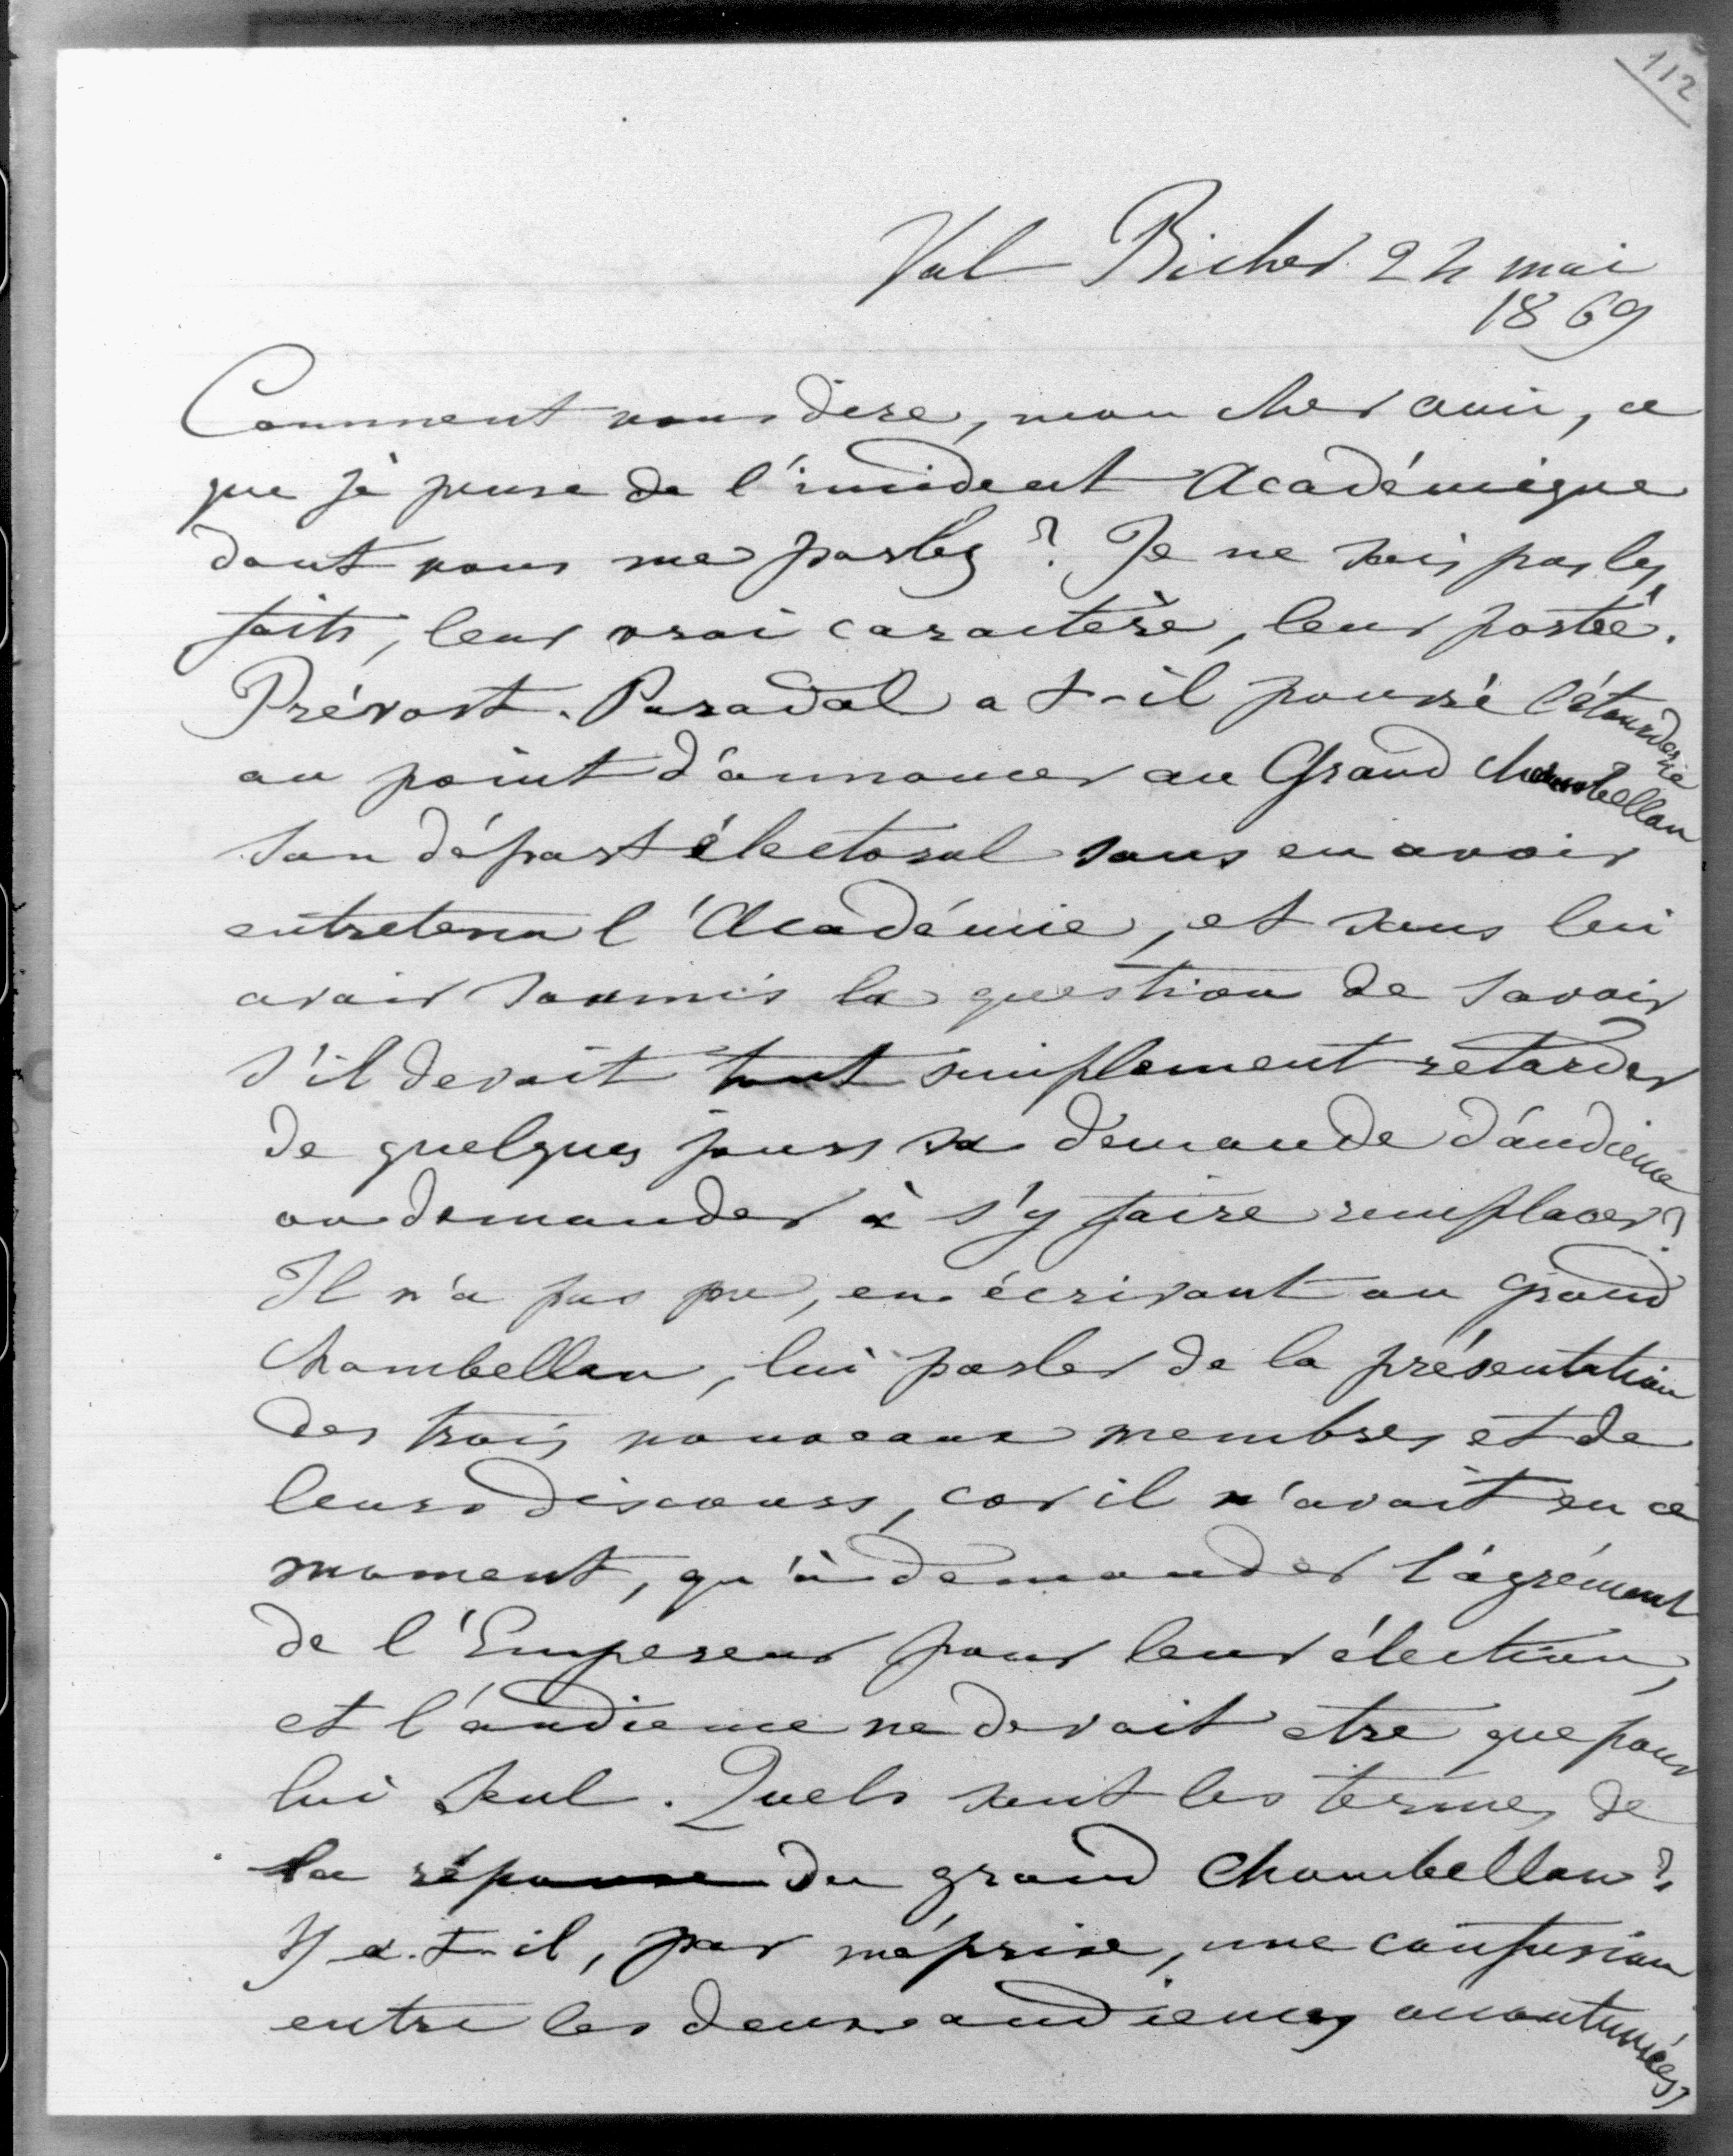 112
Val Richer 24 mai
1869
Comment vous dire, mon cher ami, ce
que je pense de l'incident Académique
dont vous me parlez ? Je ne sais pas les
faits, leur vrai caractère, leur portée.
Prévost-Paradol a t-il poussé l'étourderie
au point d'annoncer au Grand Chambellan
son départ électoral sans en avoir
entretenu l'Académie, et sans lui
avoir soumis la question de savoir
s'il devait tout simplement retarder
de quelques jours sa demande d'audience
ou demander à s'y faire remplacer ?
Il n'a pas pu, en écrivant au grand
Chambellan, lui parler de la présentation
des trois nouveaux membres et de
leurs discours, car il n'avait en ce
moment, qu'à demander l'agrément
de l'Empereur pour leur élection,
et l'audience ne devait etre que pour
lui seul. Quels sont les termes de
la réponse du grand Chambellan ?
Y a-t-il, par méprise, une confusion
entre les deux audiences accoutumées,